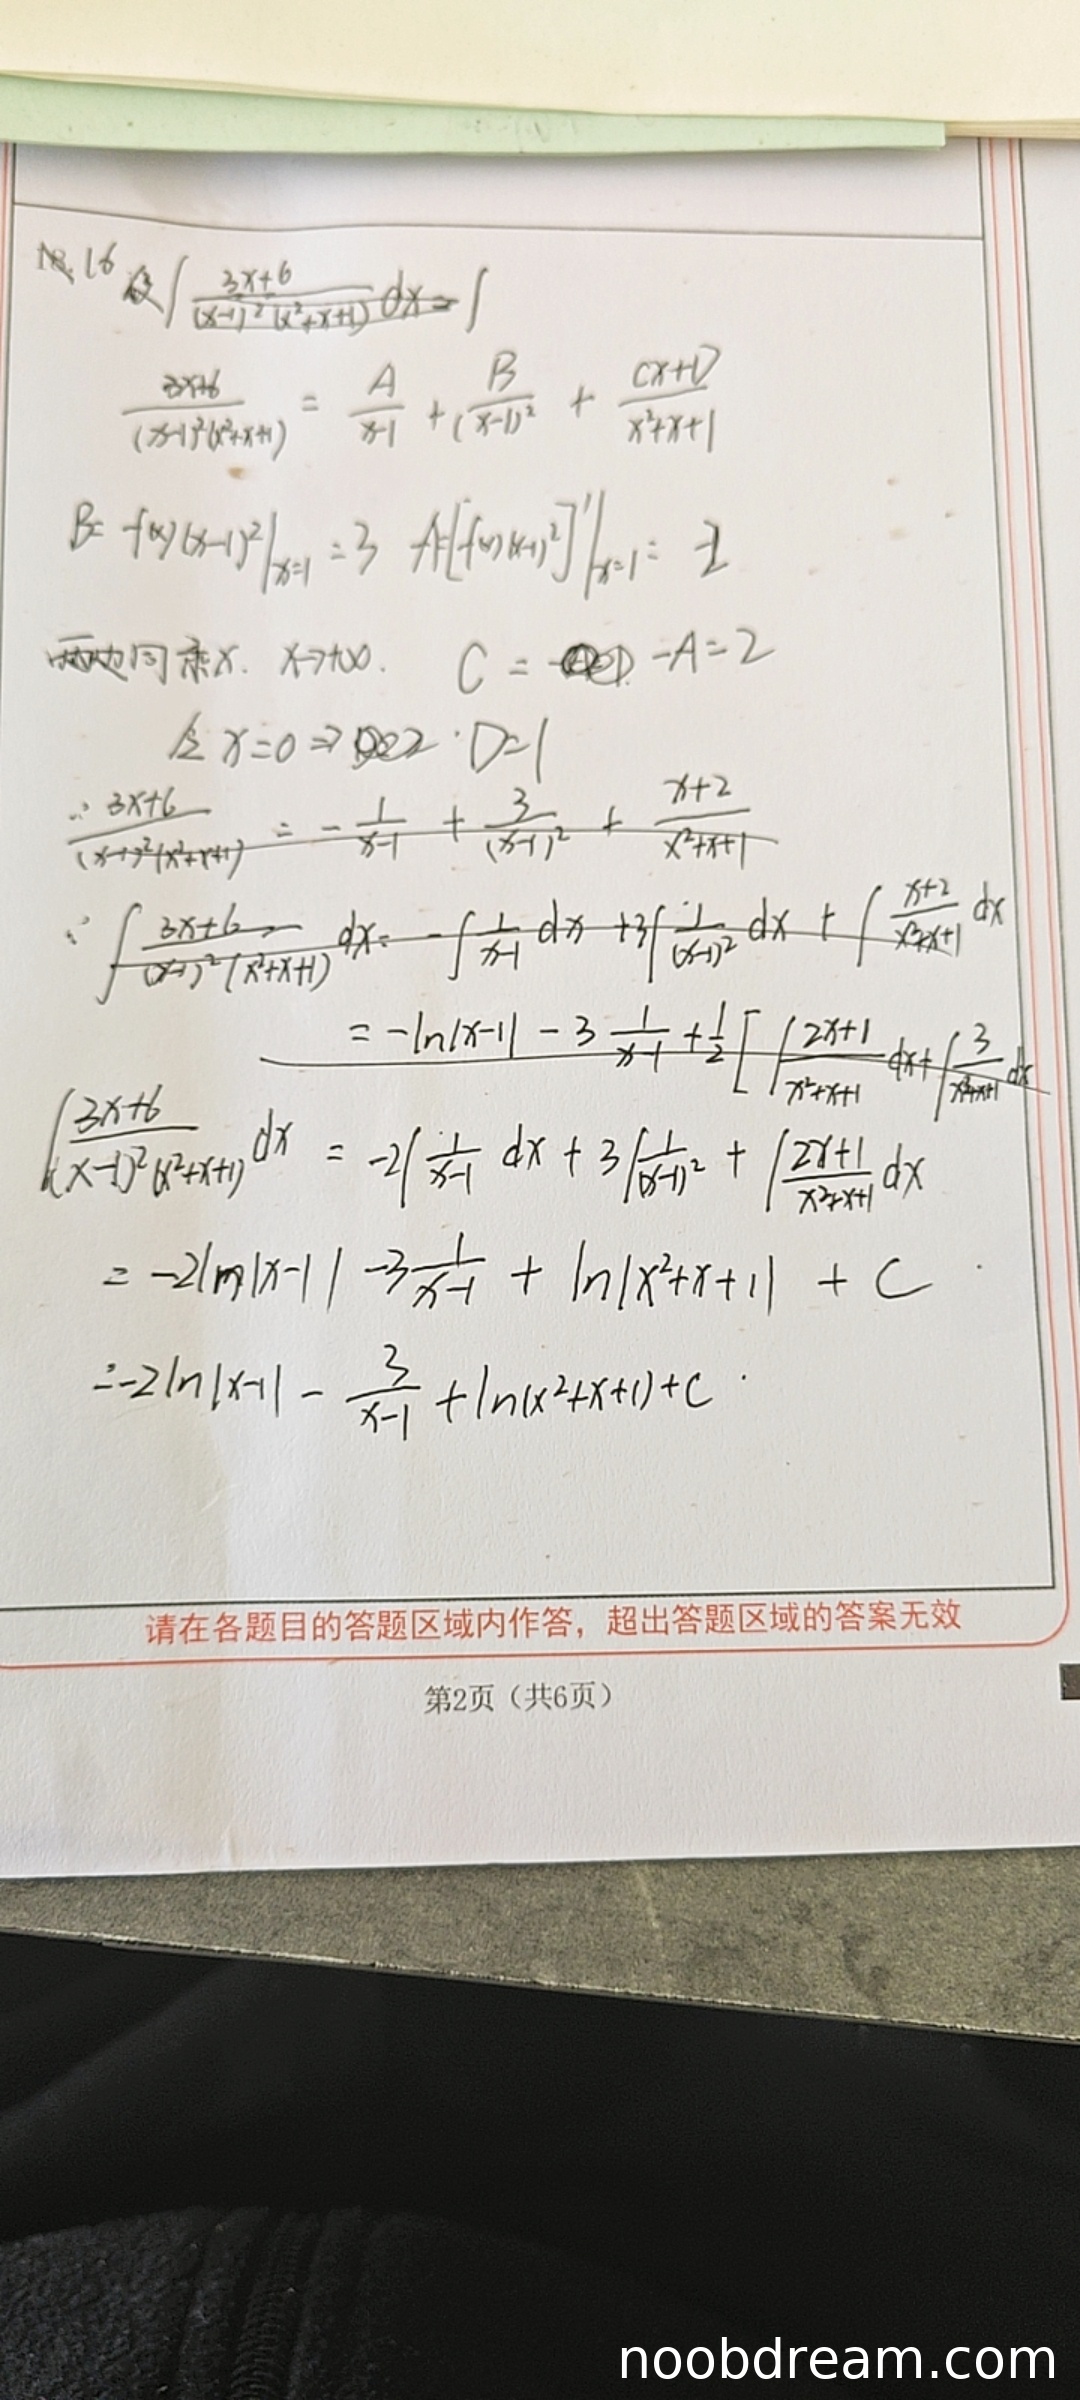 16 ∫ (3x+6)/((x-1)²(x²+x+1)) dx = ∫
(3x+6)/((x-1)²(x²+x+1)) = A/(x-1) + B/(x-1)² + (Cx+D)/(x²+x+1)
B= f(x)(x-1)²|x=1 = 3 A=[f(x)(x-1)²]'|x=1 = -2
两边同乘x. x→+∞. C = -A=2
令 x=0 ⇒ D=1
∴ (3x+6)/((x-1)²(x²+x+1)) = -1/(x-1) + 3/(x-1)² + (x+2)/(x²+x+1)
∴ ∫ (3x+6)/((x-1)²(x²+x+1)) dx = -∫ 1/(x-1) dx + 3∫ 1/(x-1)² dx + ∫ (x+2)/(x²+x+1) dx
= -ln|x-1| - 3 1/(x-1) + 1/2 [∫ (2x+1)/(x²+x+1) dx + ∫ 3/(x²+x+1) dx
∫ (3x+6)/((x-1)²(x²+x+1)) dx = -2∫ 1/(x-1) dx + 3∫ 1/(x-1)² + ∫ (2x+1)/(x²+x+1) dx
= -2ln|x-1| -3 1/(x-1) + ln|x²+x+1| + C
= -2ln|x-1| - 3/(x-1) + ln(x²+x+1)+C
请在各题目的答题区域内作答，超出答题区域的答案无效
第2页（共6页）
noobdream.com